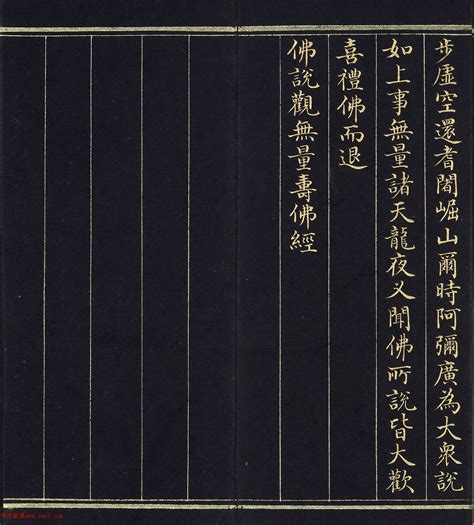 步虛空還耆闍崛山爾時阿彌廣為大眾說
如上事無量諸天龍夜义聞佛所說皆大歡
喜禮佛而退
佛說觀無量壽佛經